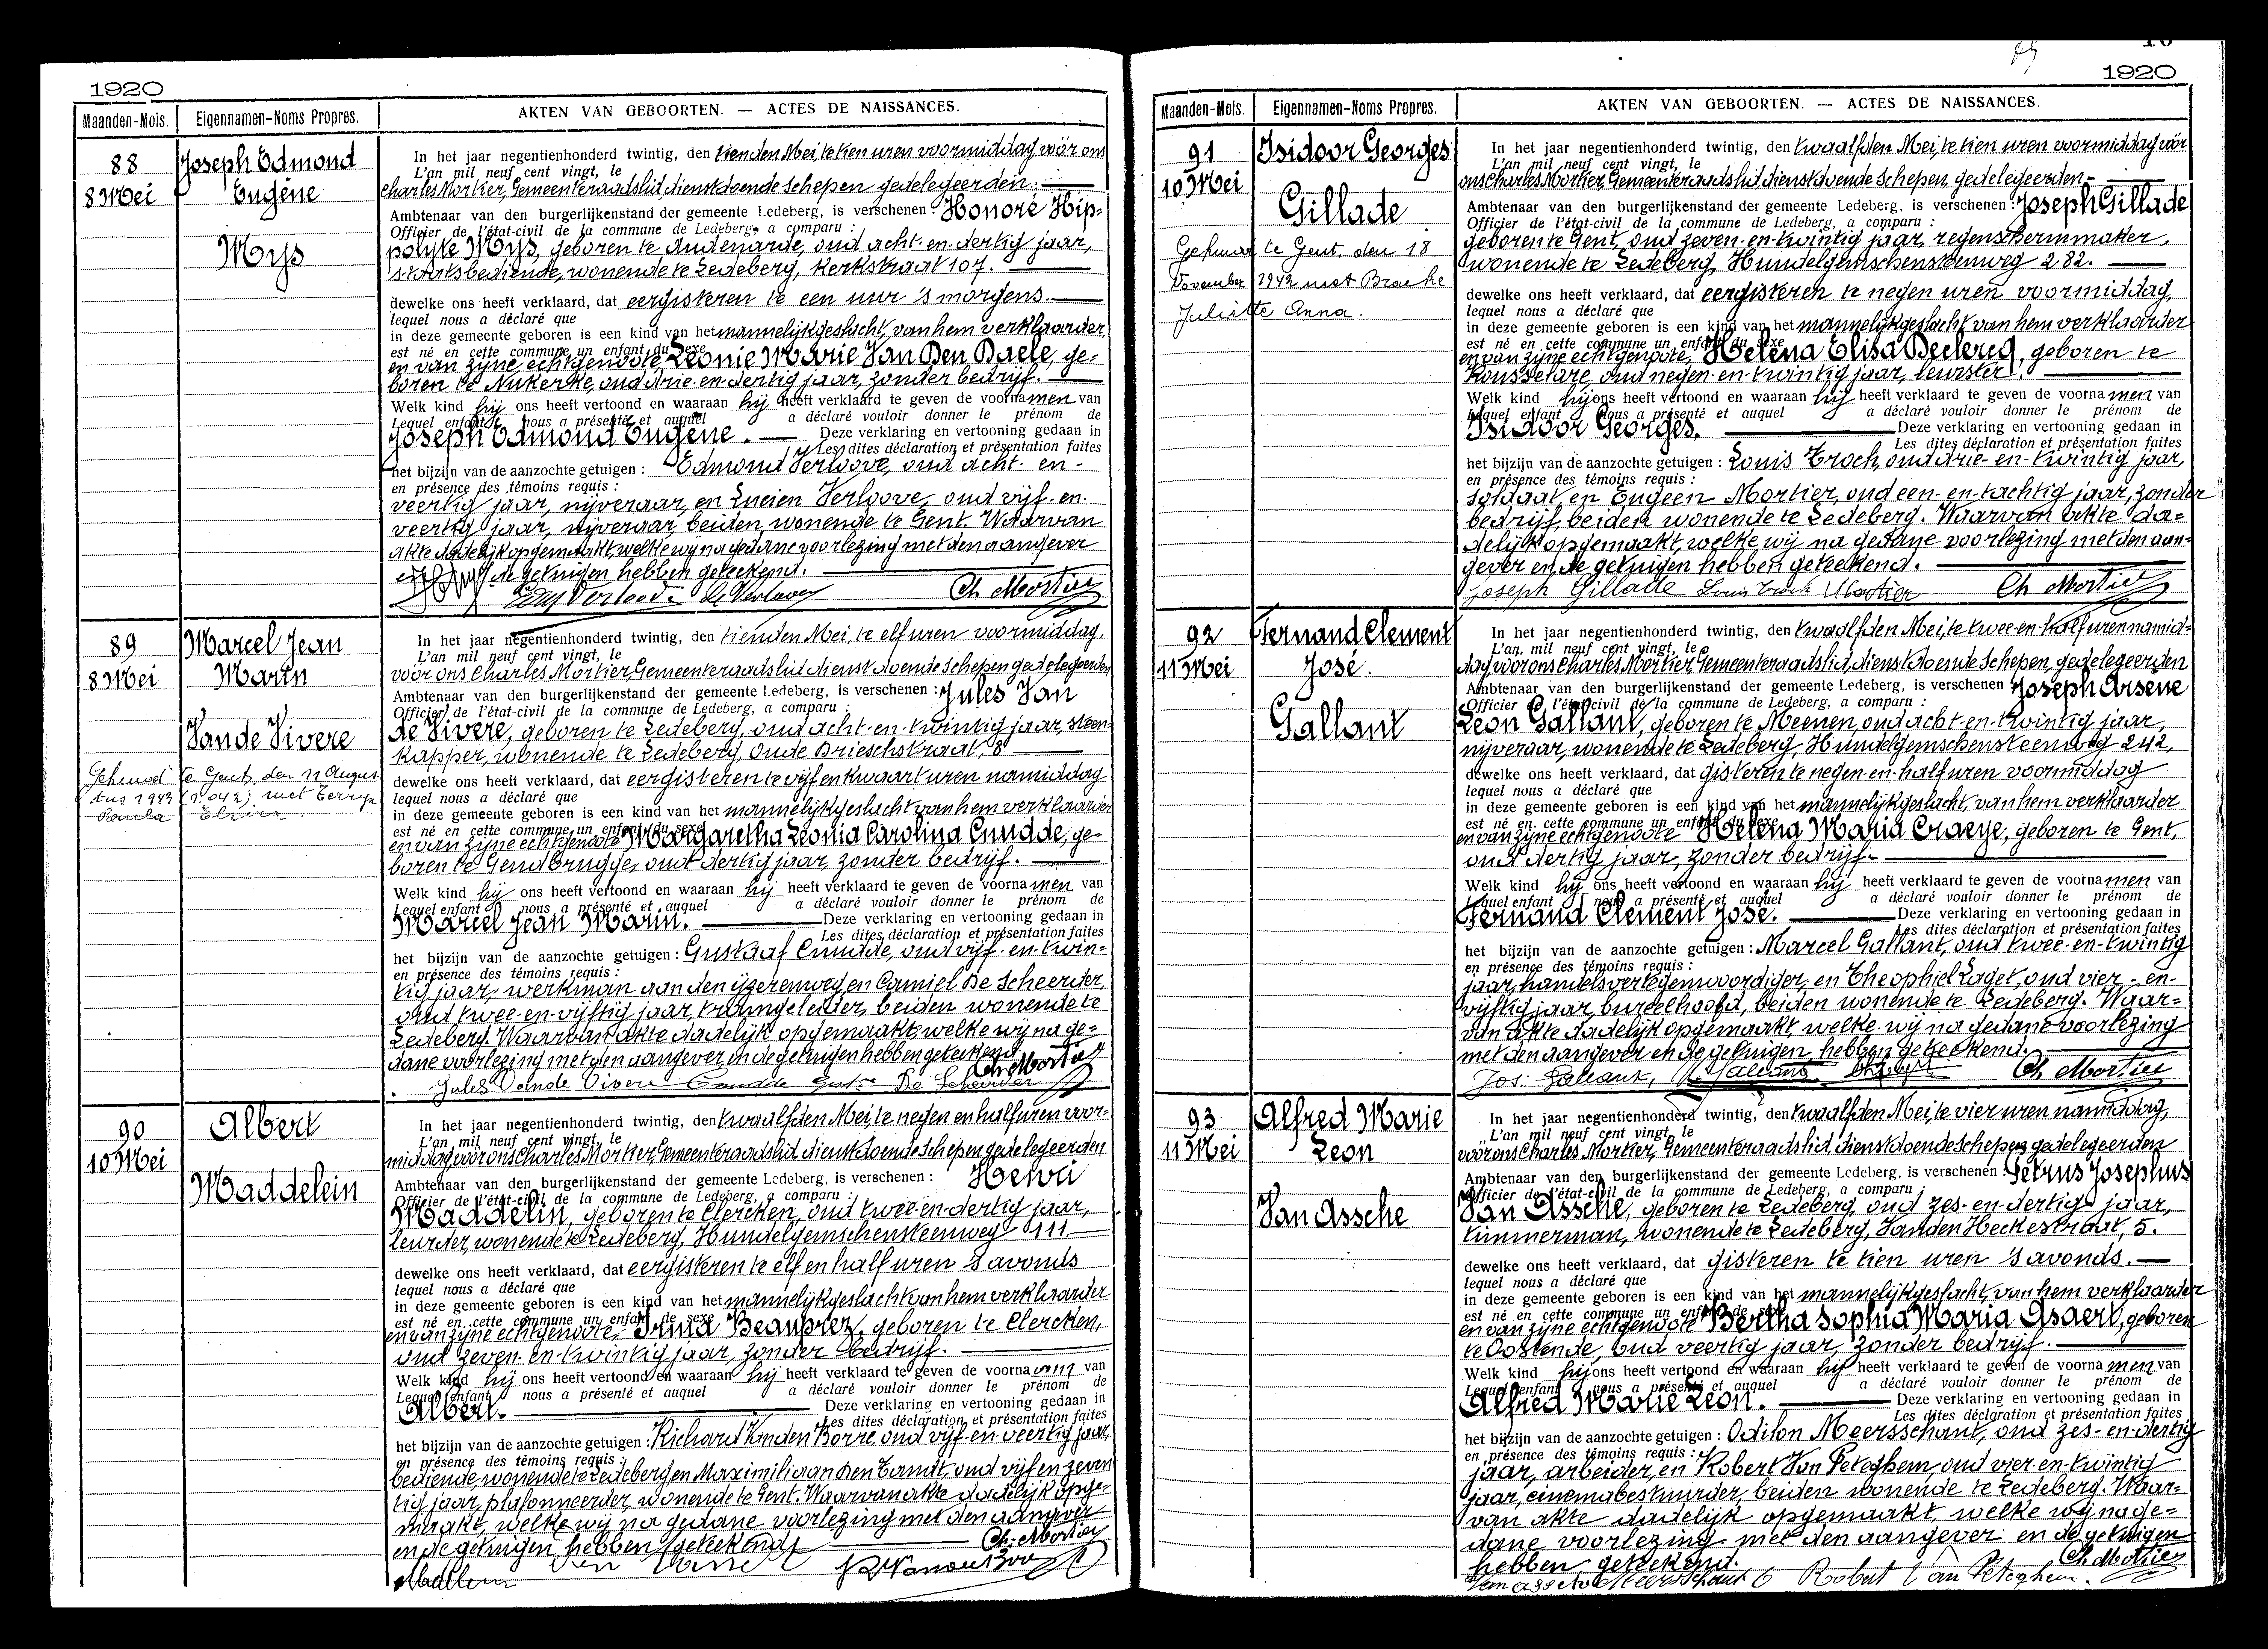 1920
Maanden-Mois. Eigennamen-Noms Propres. AKTEN VAN GEBOORTEN. — ACTES DE NAISSANCES.
88 Joseph Edmond
8 Mei Eugène
Mys
In het jaar negentienhonderd twintig, den tienden Mei, te tien uren voormiddag vóór ons
L'an mil neuf cent vingt, le
Charles Mortier, Gemeenteraadslid, dienstdoende Schepen gedelegeerden.
Ambtenaar van den burgerlijkenstand der gemeente Ledeberg, is verschenen : Honoré Hip-
Officier de l'état-civil de la commune de Ledeberg, a comparu :
polyte Mys, geboren te Audenarde, oud acht-en-dertig jaar,
staatsbediende, wonende te Ledeberg, Kerkstraat 107.
dewelke ons heeft verklaard, dat eergisteren te een uur 's morgens.
lequel nous a déclaré que
in deze gemeente geboren is een kind van het mannelijk geslacht, van hem verklaarder,
est né en cette commune un enfant du sexe
en van zijne echtgenoote, Leonie Marie Van Den Daele, ge-
boren te Nukerke, oud drie-en-dertig jaar, zonder bedrijf.
Welk kind hij ons heeft vertoond en waaraan hij heeft verklaard te geven de voornamen van
Lequel enfant nous a présenté et auquel a déclaré vouloir donner le prénom de
Joseph Edmond Eugène. — Deze verklaring en vertooning gedaan in
Les dites déclaration et présentation faites
het bijzijn van de aanzochte getuigen : Edmond Verloove, oud acht-en-
en présence des témoins requis :
veertig jaar, nijveraar, en Lucien Verloove, oud vijf-en-
veertig jaar, nijveraar, beiden wonende te Gent. Waarvan
akte dadelijk opgemaakt, welke wij na gedane voorlezing met den aangever
en de getuigen hebben geteekend.
Ch Mortier
89 Marcel Jean
8 Mei Marin
Van de Vivere
Gehuwd te Gent, den 11 Augus
tus 1943 (n. 042) met
Paula Elvira.
In het jaar negentienhonderd twintig, den tienden Mei, te elf uren voormiddag,
L'an mil neuf cent vingt, le
vóór ons Charles Mortier, Gemeenteraadslid, dienstdoende Schepen gedelegeerden
Ambtenaar van den burgerlijkenstand der gemeente Ledeberg, is verschenen : Jules Van
Officier de l'état-civil de la commune de Ledeberg, a comparu :
de Vivere, geboren te Ledeberg, oud acht-en-twintig jaar, steen-
kapper, wonende te Ledeberg, oude Brieschstraat, 8
dewelke ons heeft verklaard, dat eergisteren te vijf en kwaart uren namiddag
lequel nous a déclaré que
in deze gemeente geboren is een kind van het mannelijk geslacht van hem verklaarder
est né en cette commune un enfant du sexe
en van zijne echtgenoote Margaretha Leonia Carolina Cnudde, ge-
boren te Gendbrugge, oud dertig jaar, zonder bedrijf.
Welk kind hij ons heeft vertoond en waaraan hij heeft verklaard te geven de voornamen van
Lequel enfant nous a présenté et auquel a déclaré vouloir donner le prénom de
Marcel Jean Marin. Deze verklaring en vertooning gedaan in
Les dites déclaration et présentation faites
het bijzijn van de aanzochte getuigen : Gustaaf Cnudde, oud vijf-en-twin-
en présence des témoins requis :
tig jaar, werkman aan den ijzerenweg en Camiel De Scheerder,
oud twee-en-vijftig jaar, tramgeleider, beiden wonende te
Ledeberg. Waarvan akte dadelijk opgemaakt, welke wij na ge-
dane voorlezing met den aangever en de getuigen hebben geteekend.
Ch Mortier
Jules Vande Vivere Cnudde De Scheerder
90 Albert
10 Mei
Maddelein
In het jaar negentienhonderd twintig, den twaalfden Mei, te negen en half uren voor-
L'an mil neuf cent vingt, le
middag vóór ons Charles Mortier, Gemeenteraadslid, dienstdoende Schepen gedelegeerden
Ambtenaar van den burgerlijkenstand der gemeente Ledeberg, is verschenen : Henri
Officier de l'état-civil de la commune de Ledeberg, a comparu :
Maddelin, geboren te Clercken, oud twee-en-dertig jaar,
leurder, wonende te Ledeberg, Hundelgemschensteenweg 111
dewelke ons heeft verklaard, dat eergisteren te elf en half uren 's avonds
lequel nous a déclaré que
in deze gemeente geboren is een kind van het mannelijk geslacht van hem verklaarder
est né en cette commune un enfant de sexe
en van zijne echtgenoote, Irma Beauprez, geboren te Clercken,
oud zeven-en-twintig jaar, zonder bedrijf.
Welk kind hij ons heeft vertoond en waaraan hij heeft verklaard te geven de voornaam van
Lequel enfant nous a présenté et auquel a déclaré vouloir donner le prénom de
Albert. Deze verklaring en vertooning gedaan in
Les dites déclaration et présentation faites
het bijzijn van de aanzochte getuigen : Richard Vanden Borre, oud vijf-en-veertig jaar,
en présence des témoins requis :
bediende, wonende te Ledeberg en Maximiliaan Den Tandt, oud vijf en zeven
tig jaar, plafonneerder, wonende te Gent. Waarvan akte dadelijk opge-
maakt, welke wij na gedane voorlezing met den aangever
en de getuigen hebben geteekend
Ch. Mortier
1920
Maanden-Mois. Eigennamen-Noms Propres. AKTEN VAN GEBOORTEN. — ACTES DE NAISSANCES.
91 Isidoor Georges
10 Mei
Gillade
Gehuwd te Gent, den 18
November 1942 met Bracke
Juliette Anna.
In het jaar negentienhonderd twintig, den twaalfden Mei, te tien uren voormiddag vóór
L'an mil neuf cent vingt, le
ons Charles Mortier, Gemeenteraadslid, dienstdoende Schepen, gedelegeerden
Ambtenaar van den burgerlijkenstand der gemeente Ledeberg, is verschenen : Joseph Gillade
Officier de l'état-civil de la commune de Ledeberg, a comparu :
geboren te Gent, oud zeven-en-twintig jaar, regenschermmaker,
wonende te Ledeberg, Hundelgemschensteenweg 282.
dewelke ons heeft verklaard, dat eergisteren te negen uren voormiddag,
lequel nous a déclaré que
in deze gemeente geboren is een kind van het mannelijk geslacht van hem verklaarder
est né en cette commune un enfant du sexe
en van zijne echtgenoote, Helena Elisa Declercq, geboren te
Rousselare, oud negen-en-twintig jaar, leurster.
Welk kind hij ons heeft vertoond en waaraan hij heeft verklaard te geven de voornamen van
Lequel enfant nous a présenté et auquel a déclaré vouloir donner le prénom de
Isidoor Georges. Deze verklaring en vertooning gedaan in
Les dites déclaration et présentation faites
het bijzijn van de aanzochte getuigen : Louis Troch, oud drie-en-twintig jaar,
en présence des témoins requis :
soldaat, en Eugeen Mortier, oud een-en-tachtig jaar, zonder
bedrijf, beiden wonende te Ledeberg. Waarvan akte da-
delijk opgemaakt, welke wij na gedane voorlezing met den aan-
gever en de getuigen hebben geteekend.
Joseph Gillade Louis Troch Mortier Ch Mortier
92 Fernand Clement
11 Mei José.
Gallant
In het jaar negentienhonderd twintig, den twaalfden Mei, te twee-en-half uren namid-
L'an mil neuf cent vingt, le
dag vóór ons Charles Mortier Gemeenteraadslid, dienstdoende Schepen, gedelegeerden
Ambtenaar van den burgerlijkenstand der gemeente Ledeberg, is verschenen Joseph Arsène
Officier de l'état-civil de la commune de Ledeberg, a comparu :
Leon Gallant, geboren te Meenen, oud acht-en-twintig jaar,
nijveraar, wonende te Ledeberg, Hundelgemschensteenweg 242,
dewelke ons heeft verklaard, dat gisteren te negen-en-half uren voormiddag
lequel nous a déclaré que
in deze gemeente geboren is een kind van het mannelijk geslacht, van hem verklaarder
est né en cette commune un enfant du sexe
en van zijne echtgenoote Helena Maria Craeye, geboren te Gent,
oud dertig jaar, zonder bedrijf.
Welk kind hij ons heeft vertoond en waaraan hij heeft verklaard te geven de voornamen van
Lequel enfant nous a présenté et auquel a déclaré vouloir donner le prénom de
Fernand Clement José. Deze verklaring en vertooning gedaan in
Les dites déclaration et présentation faites
het bijzijn van de aanzochte getuigen : Marcel Gallant, oud twee-en-twintig
en présence des témoins requis :
jaar, handelsvertegenwoordiger, en Theophiel Laget, oud vier-en-
vijftig jaar, bureelhoofd, beiden wonende te Ledeberg. Waar-
van akte dadelijk opgemaakt, welke wij na gedane voorlezing
met den aangever en de getuigen hebben geteekend.
Jos. Gallant, M. Gallant Ch Mortier
93 Alfred Marie
11 Mei Leon
Van Assche
In het jaar negentienhonderd twintig, den twaalfden Mei, te vier uren namiddag,
L'an mil neuf cent vingt, le
vóór ons Charles Mortier, Gemeenteraadslid, dienstdoende Schepen gedelegeerden
Ambtenaar van den burgerlijkenstand der gemeente Ledeberg, is verschenen : Petrus Josephus
Officier de l'état-civil de la commune de Ledeberg, a comparu :
Van Assche, geboren te Ledeberg, oud zes-en-dertig jaar,
timmerman, wonende te Ledeberg, Vanden Heckestraat, 5.
dewelke ons heeft verklaard, dat gisteren te tien uren 's avonds.
lequel nous a déclaré que
in deze gemeente geboren is een kind van het mannelijk geslacht, van hem verklaarder
est né en cette commune un enfant de sexe
en van zijne echtgenoote Bertha Sophia Maria Asaert, geboren
te Oostende, oud veertig jaar, zonder bedrijf.
Welk kind hij ons heeft vertoond en waaraan hij heeft verklaard te geven de voornamen van
Lequel enfant nous a présenté et auquel a déclaré vouloir donner le prénom de
Alfred Marie Leon. Deze verklaring en vertooning gedaan in
Les dites déclaration et présentation faites
het bijzijn van de aanzochte getuigen : Odilon Meersschaut, oud zes-en-dertig
en présence des témoins requis :
jaar, arbeider, en Robert Van Peteghem, oud vier-en-twintig
jaar, cinemabestuurder, beiden wonende te Ledeberg. Waar-
van akte dadelijk opgemaakt, welke wij na ge-
dane voorlezing met den aangever en de getuigen
hebben geteekend. Ch Mortier
Van Assche Meersschaut O Robert Van Peteghem.